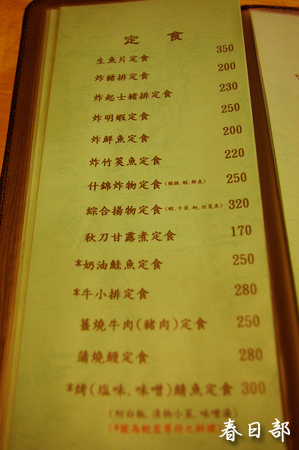 定食
生魚片定食 350
炸豬排定食 200
炸起士豬排定食 230
炸明蝦定食 250
炸鮮魚定食 200
炸竹筴魚定食 220
什錦炸物定食(豬排、蝦、鮮魚) 250
綜合揚物定食(蝦、干貝、蚵、竹筴魚) 320
秋刀甘露煮定食 170
*奶油鮭魚定食 250
*牛小排定食 280
薑燒牛肉(豬肉)定食 250
蒲燒鰻定食 280
*烤(塩味、味噌)鯖魚定食 300
(附白飯、漬物小菜、味噌湯)
(*號為較需等待之料理)
春日部